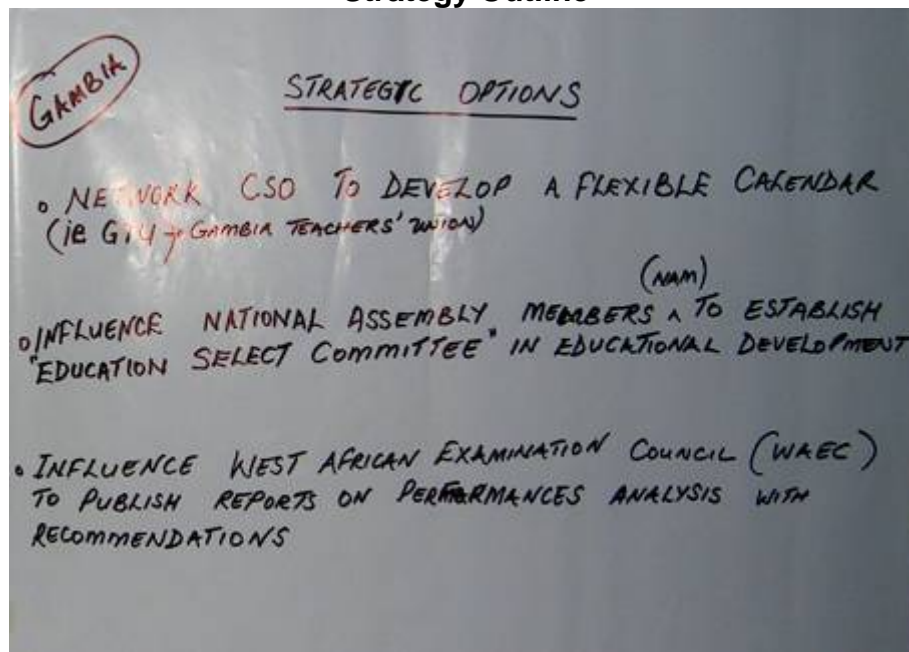 Strategy Outline
GAMBIA
STRATEGIC OPTIONS
• NETWORK CSO TO DEVELOP A FLEXIBLE CALENDAR
(ie GTU → GAMBIA TEACHERS' UNION)
(NAM)
• INFLUENCE NATIONAL ASSEMBLY MEMBERS ^ TO ESTABLISH
"EDUCATION SELECT COMMITTEE" IN EDUCATIONAL DEVELOPMENT
• INFLUENCE WEST AFRICAN EXAMINATION COUNCIL (WAEC)
TO PUBLISH REPORTS ON PERFORMANCES ANALYSIS WITH
RECOMMENDATIONS